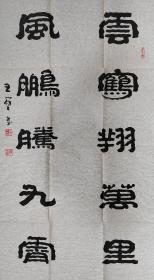 雲鶴翔萬里
風鵬騰九霄